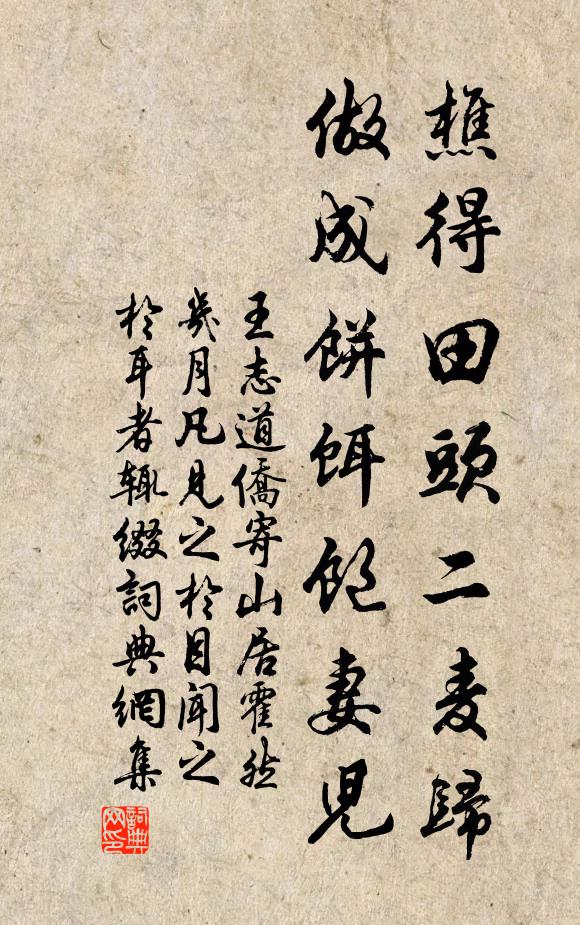 樵得田頭二麦歸
做成餅餌飽妻児
王志道僑寄山居霍然
幾月凡見之於目聞之
於耳者輒綴詞典網集
詞典网印